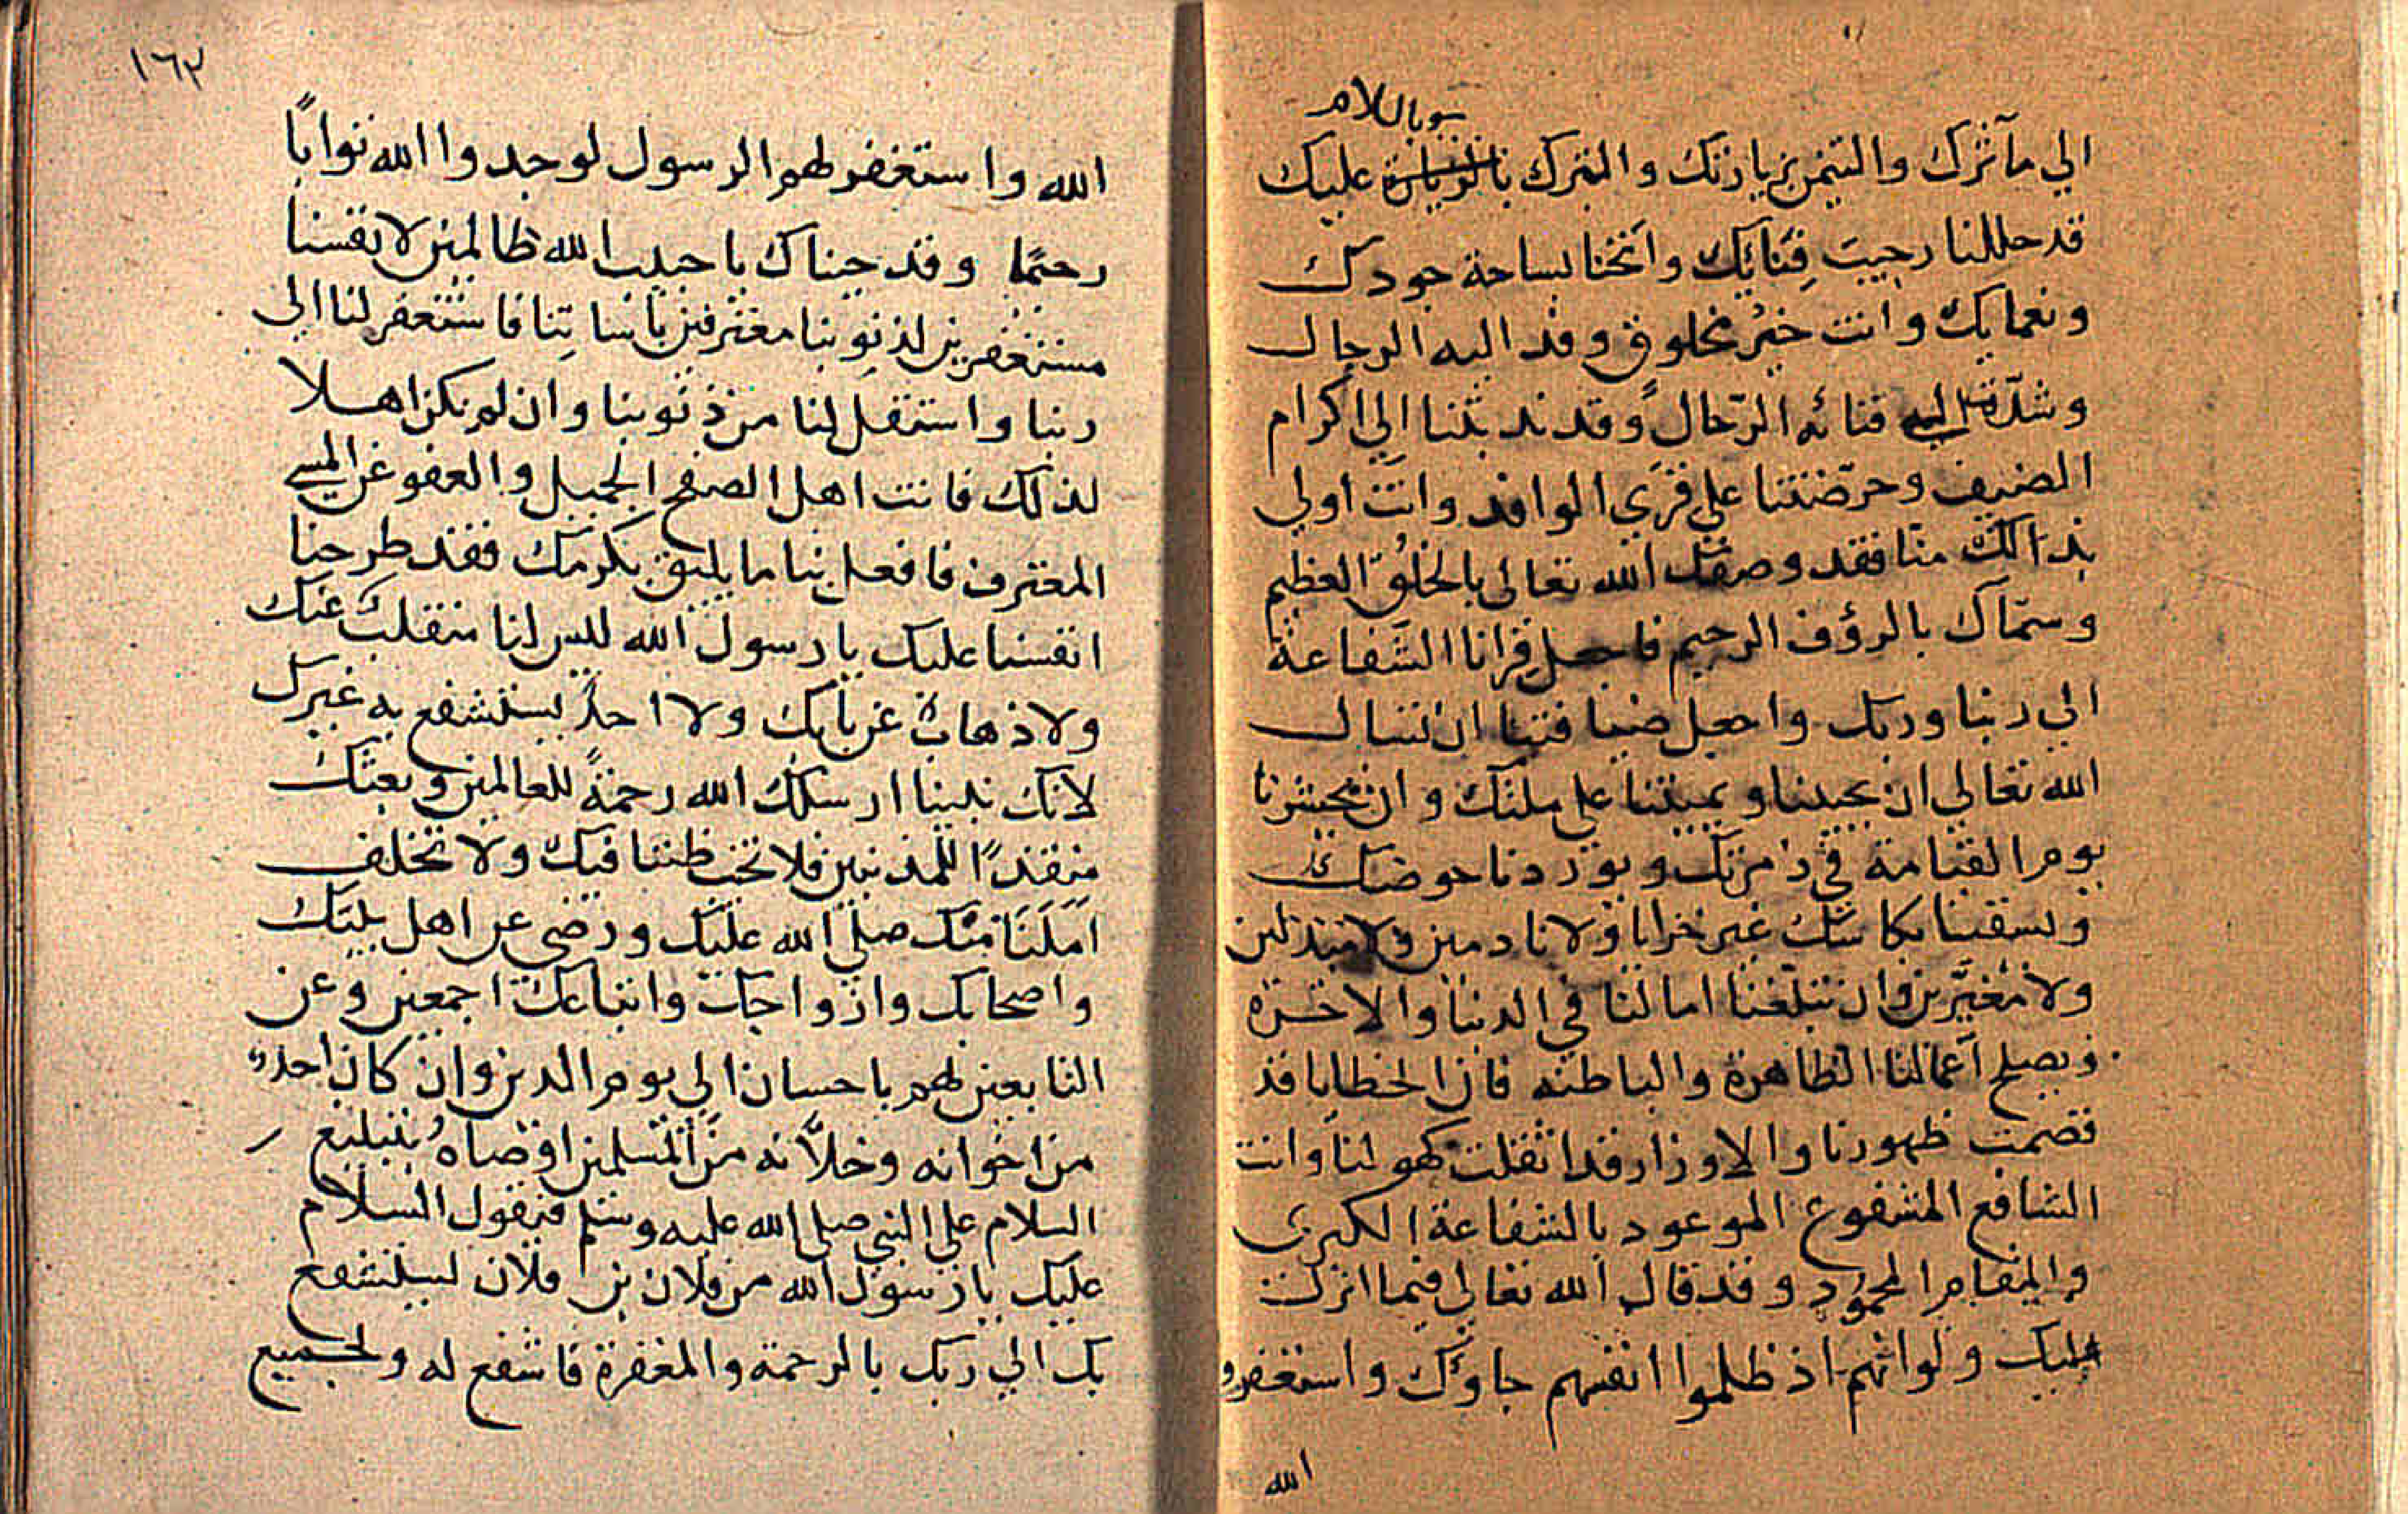 بالسلام
الي مآثرك والتيمن بزيارتك والتبرك بالزيارة عليك
قد حللنا رحيب فِنَائِك وانخنا بساحة جودك
ونعمايك وانت خيرُ مخلوق وفد اليه الرجال
وشدّت اليه فنائه الرّحال وقد ندبتنا الي اكرام
الضيف وحرّضتنا علي قري الوافد وانت اولي
بذالك منّا فقد وصفك الله تعالى بالخلُق العظيم
وسمّاك بالرؤف الرحيم فاجعل قرانا الشفاعة
الي ربنا وربك واجعل ضيافتنا ان تسال
الله تعالي ان يحيينا ويميتنا علي ملتك وان يحشرنا
يوم القيامة في زمرتك ويوردنا حوضك
ويسقينا بكاسك غير خزايا ولا نادمين ولا مبدلين
ولا مُغيّرين وان تبلّغنا امالنا في الدنيا والاخرة
ويصلح أعمالنا الظاهرة والباطنه فان الخطايا قد
قصمت ظهورنا والاوزار قد اثقلت كهولنا وانت
الشافع المشفوع الموعود بالشفاعة الكبرى
والمقام المحمود وقد قال الله تعالي فيما انزلت
عليك ولو انهم اذ ظلموا انفسهم جاوُك واستغفروا
الله
١٦٢
الله واستغفر لهم الرسول لوجدوا الله توابًا
رحيمًا وقد جيناك يا حبيب الله ظالمين لانفسنا
مستغفرين لذنوبنا معترفين باساتِنا فاستغفر لنا الى
ربنا واستقل لنا من ذنوبنا وان لم نكن اهلا
لذلك فانت اهل الصفح الجميل والعفو عن المسي
المعترف فافعل بنا ما يليق بكرمك فقد طرحنا
انفسنا عليك يا رسول الله ليس لنا منقلب عنك
ولا ذهابٌ عن بابك ولا احدٌ يستشفع به غيرك
لانك نبينا ارسلك الله رحمةً للعالمين وبعثك
منقذًا للمذنبين فلا تخب ظننا فيك ولا تخلف
املَنَا منك صلي الله عليك ورضي عن اهل بيتك
واصحابك وازواجك واتباعك اجمعين وعن
التابعين لهم باحسان الي يوم الدين وان كان احدٌ
من اخوانه وخلاّنه من المسلمين اوصاهُ بتبليغ
السلام علي النبي صلي الله عليه وسلم فيقول السلام
عليك يا رسول الله من فلان بن فلان يستشفع
بك الي ربك بالرحمة والمغفرة فاشفع له ولجميع